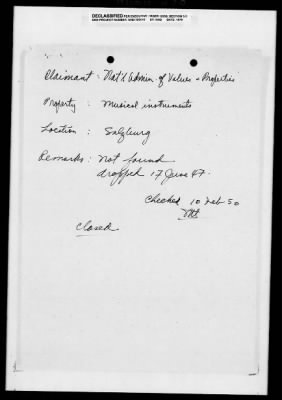 DECLASSIFIED
Claimant : Nat'l Admin. of Values & Properties
Property : Musical instruments
Location : Salzburg
Remarks : not found
dropped 17 June 47.
Checked 10 Feb 50
Closed